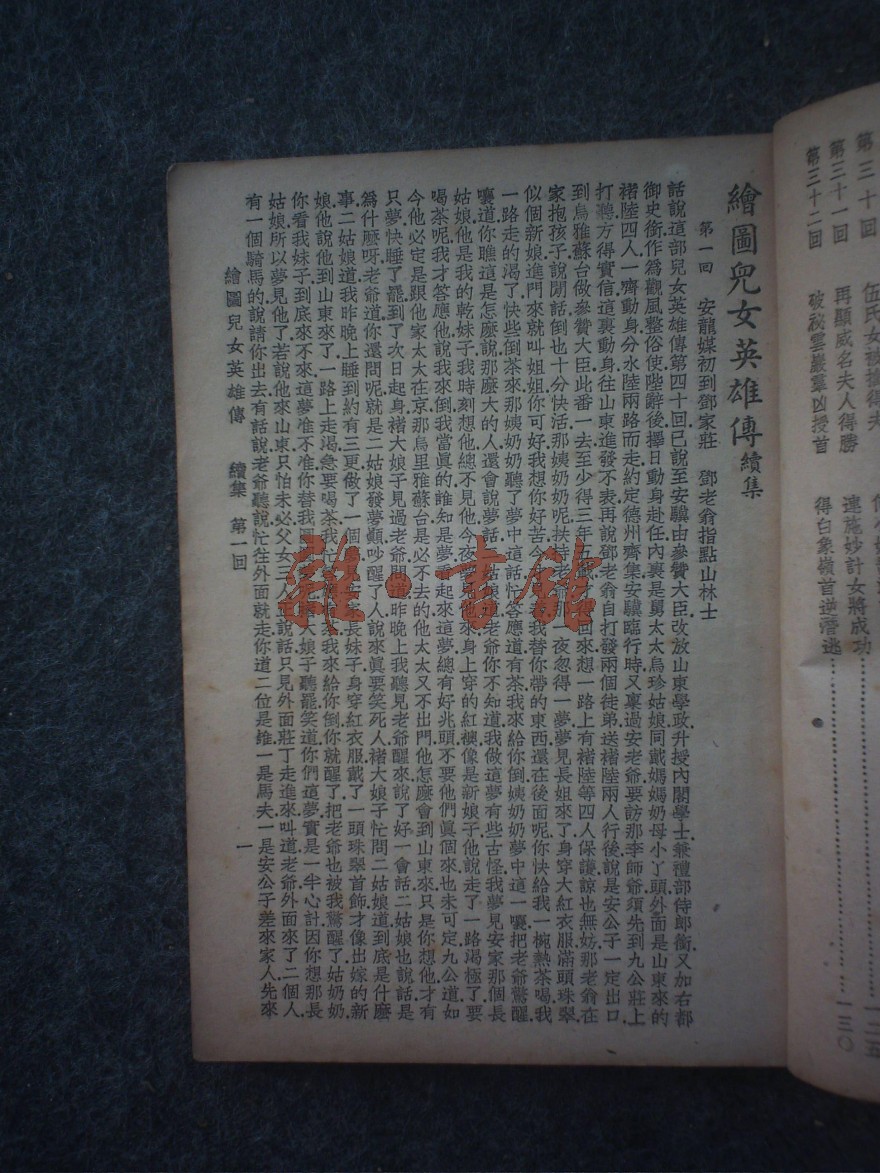 第三十回
第三十一回 再顯威名夫人得勝 連施妙計女將成功
第三十二回 破祕雲巖羣凶授首 得白象嶺首逆潛逃……一三〇
繪圖兒女英雄傳續集
第一回 安龍媒初到鄧家莊 鄧老翁指點山林士
話說這部兒女英雄傳第四十回已說至安驥由參贊大臣改放山東學政升授內閣學士兼禮部侍郎銜又加右都
御史銜作爲觀風整俗使陛辭後擇日動身赴任內裏是舅太太烏珍姑娘同戴媽媽奶母小丫頭外面是山東來的
褚陸四人一齊動身分水陸兩路而走約定德州齊集安驥臨行時又稟過安老爺要訪那李師爺須先到九公莊上
打聽方得實信這裏動身往山東進發不表再說鄧老翁自打發兩個徒弟送褚陸兩人行後說是安公子一定出口
到烏雅蘇台做參贊大臣此番一去至少得三年五回來想一路上有褚陸等四人保護諒也無妨那老翁在
家抱孩子說閒話倒也十分快活那姨奶奶呢扶持老爺那一夜忽得一夢夢見長姐來了身穿大紅衣服滿頭珠翠
似個新娘進門來就叫姐姐你可好我想你好苦今見我替你帶的東西還在後面呢你快給我一椀熱茶喝我
一路走的渴了快些倒茶來那姨奶奶聽了夢中這話忙答應道有茶我來給你倒姨奶奶夢中這一嚷把老爺驚醒
嚷道你瞧這是怎麽說那麽大的人還會說夢話姑娘道老爺你不知道我做這夢有些古怪我夢見安家那個長
姑娘他是我的乾妹子我時刻想他總不見他今夜夢見他來身上穿的紅襖像是新娘子他說走了一路渴極了要
喝茶呢我才答應他說我來倒我當眞的誰知是夢看起來這夢總有好兆頭不要他們眞個來也未可定九公道如
今他必定是跟他家太太在京那烏里雅蘇台是必不去的他太太又不出門他怎麽會到山東來只是你想他才有
只夢快睡了罷到了次日起身褚大娘子見過老爺問道昨晚上我聽見老爺醒來說了好一會話二姑娘也說話是
爲什麽呀老爺道你還問呢就是二姑娘發夢顚吵醒了人說來眞要笑死人褚大娘子忙問二姑娘道到底是什麽
事二姑娘道我昨晚上睡到約有三更做了一個夢安家長妹子身穿紅衣服戴了一頭珠翠首飾才像出嫁的新
娘他說他到山東來了一路上走渴急要喝茶我忙我來給你倒你就醒了把老爺也被我驚醒了姑奶奶
你看我妹子到底來不來這夢准不准你替我圓大娘子聽罷笑道你們這夢實是一半心計因你想那長
姑娘所以夢見他了若說他來山東只怕未必父女三人正說話只見外面莊丁走進來叫道老爺外面來了二個人
有一個騎馬的說請你出去有話說老爺聽說忙往外面就走你道二位是誰一是馬夫一是安公子差來家人先來
繪圖兒女英雄傳 續集 第一回 一
雜·書館